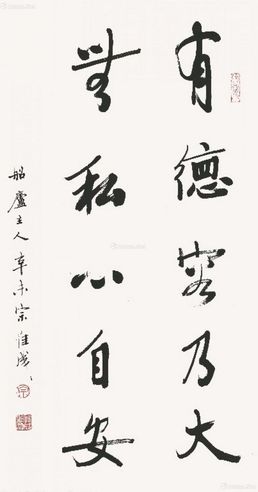 有德容乃大
無私心自安
船廬主人辛未宗維成